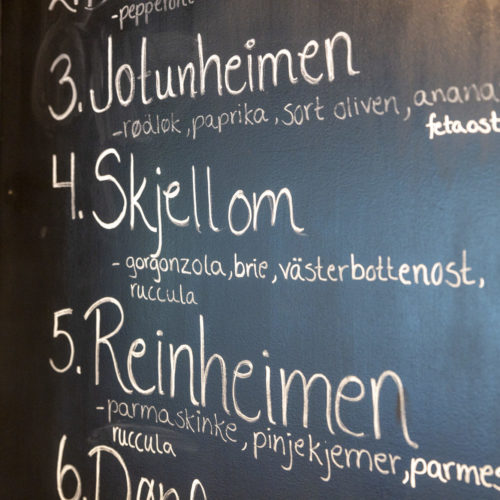 -pepperoni
3. Jotunheimen
-rødløk, paprika, sort oliven, anana
fetaost
4. Skjellom
- gorgonzola, brie, västerbottenost,
ruccula
5. Reinheimen
-parmaskinke, pinjekjerner, parmes
ruccula
6.